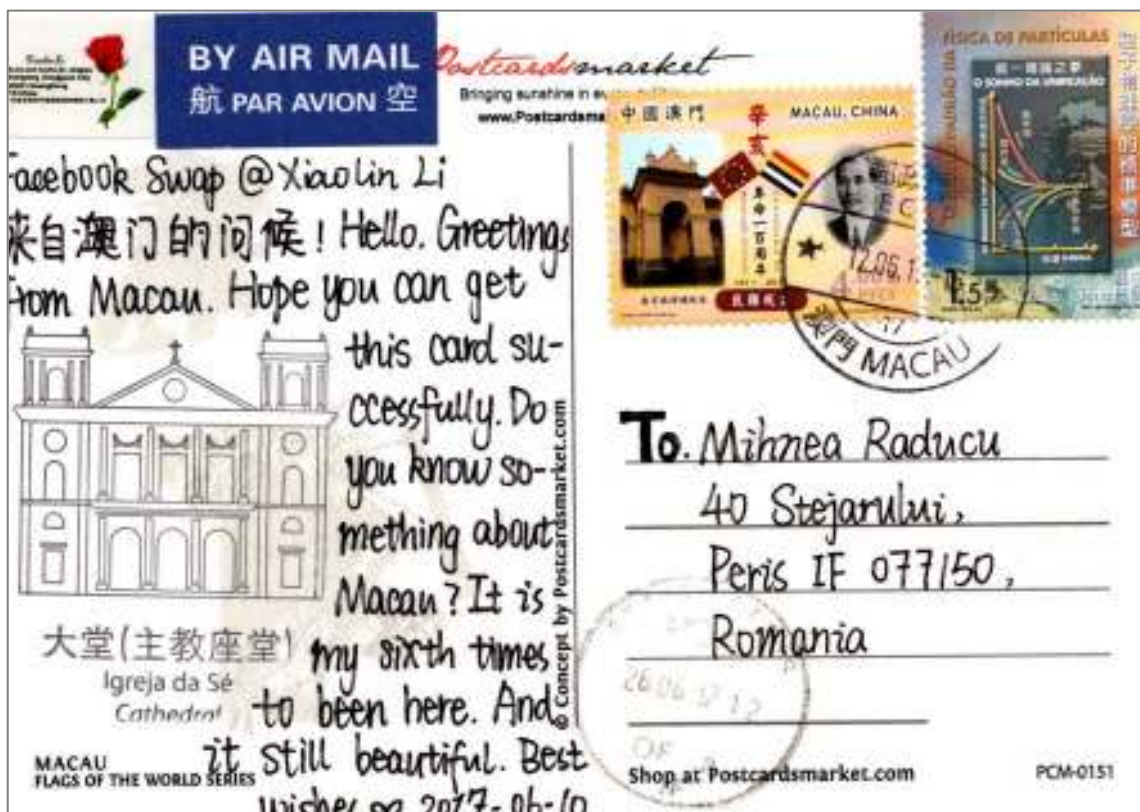 BY AIR MAIL
航 PAR AVION 空
Postcardsmarket
Bringing sunshine in
www.Postcardsma
中國澳門
辛亥
MACAU, CHINA
革命一百周年
FÍSICA DE PARTÍCULAS
O SONHO DA UNIFICAÇÃO
Facebook Swap @ Xiaolin Li
来自澳门的问候! Hello. Greetings
from Macau. Hope you can get
this card su-
ccessfully. Do
you know so-
mething about
Macau? It is
my sixth times
to been here. And
it still beautiful. Best
wishes on 2017-06-10
大堂(主教座堂)
Igreja da Sé
Cathedral
MACAU
FLAGS OF THE WORLD SERIES
© Concept by Postcardsmarket.com
12.06.1
17
澳門 MACAU
To. Mihnea Raducu
40 Stejarului,
Peris IF 077150,
Romania
26 06 17 12
OF
Shop at Postcardsmarket.com
PCM-0151